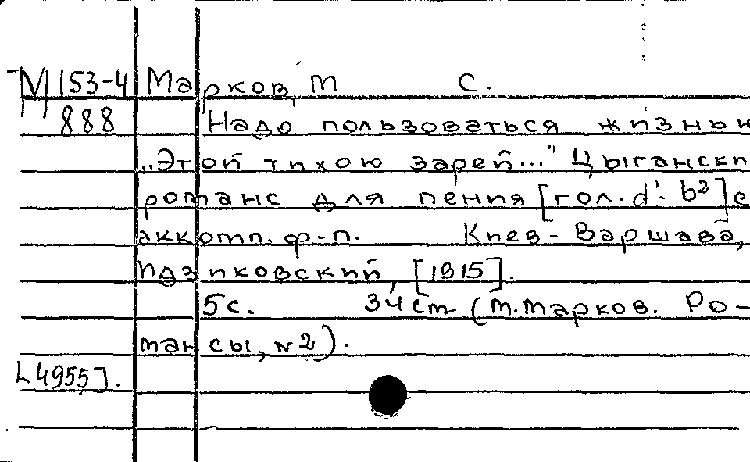 М 153-4 Марков, М С.
888 Надо пользоваться жизнью
„Этой тихою зарей..." Цыгански
романс для пения [гол. d¹- b²] с
аккомп. ф-п. Киев - Варшава,
Идзиковский, [1915].
5с. 34 см (М. Марков. Ро-
мансы, №2).
[4955].